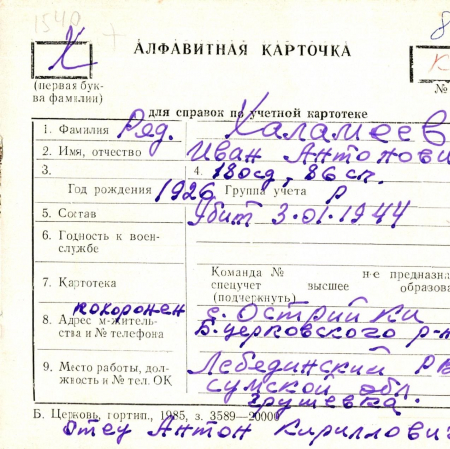 1540
Х
8
АЛФАВИТНАЯ КАРТОЧКА
К
(первая бук-
ва фамилии)
№
для справок по учетной картотеке
1. Фамилия Ряд. Халамеев
2. Имя, отчество Иван Антонови
3. 4. 180сд, 86сп.
Год рождения 1926 Группа учета Р
5. Состав Убит 3.01.1944
6. Годность к воен-
службе
Команда № не предназна
7. Картотека спецучет высшее образова
(подчеркнуть)
похоронен с. Острийки
8. Адрес м-житель-
ства и № телефона Б.церковского р-н
9. Место работы, дол-
жность и № тел. ОК Лебединский РВ
сумской обл.
Грушевка.
Б. Церковь, гортип., 1985, з. 3589—20000
Отец Антон Кириллович